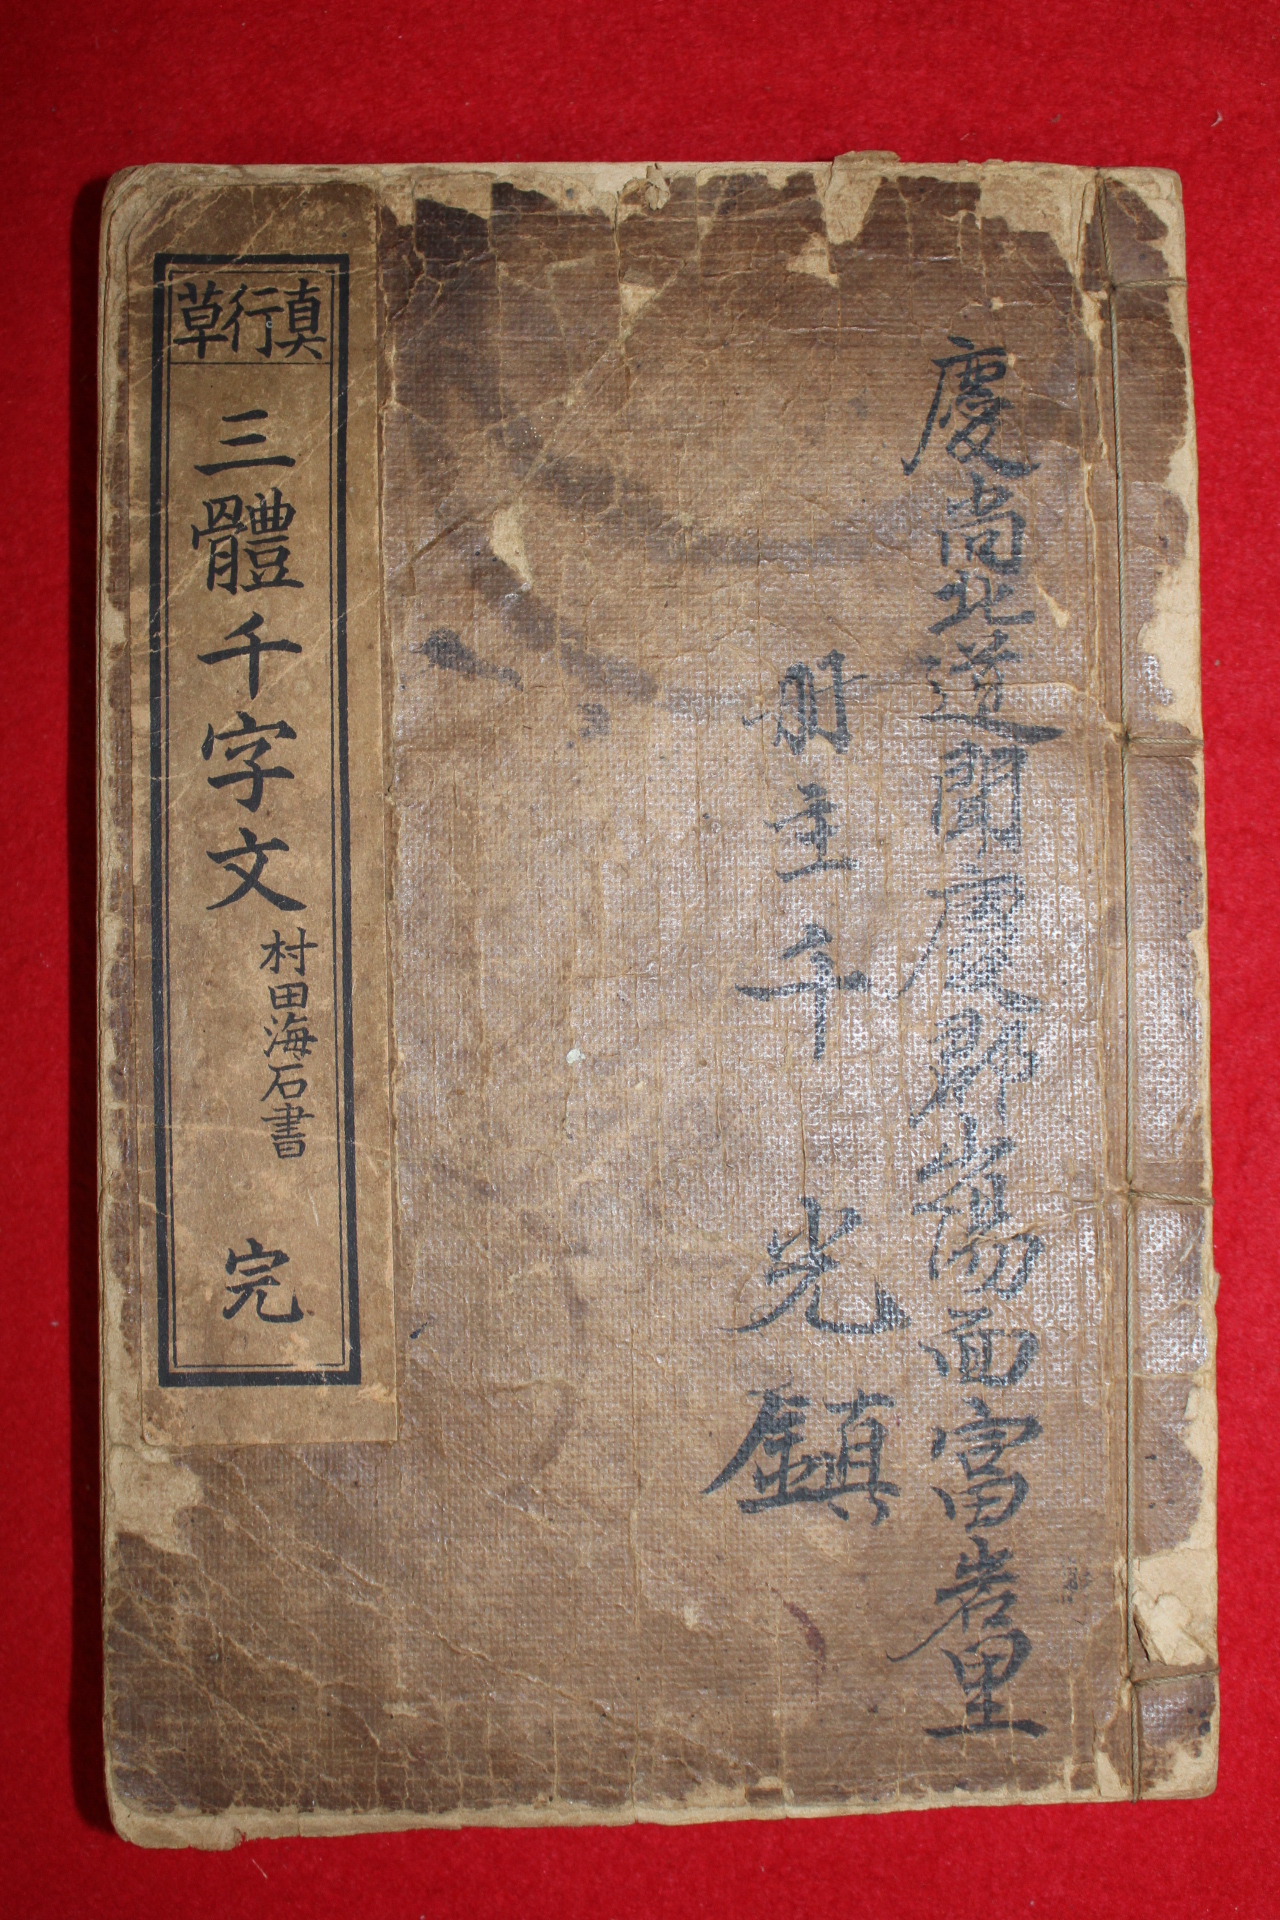 慶尚北道聞慶郡山陽面富岩里
册主千光鎮
真行草
三體千字文
村田海石書
完